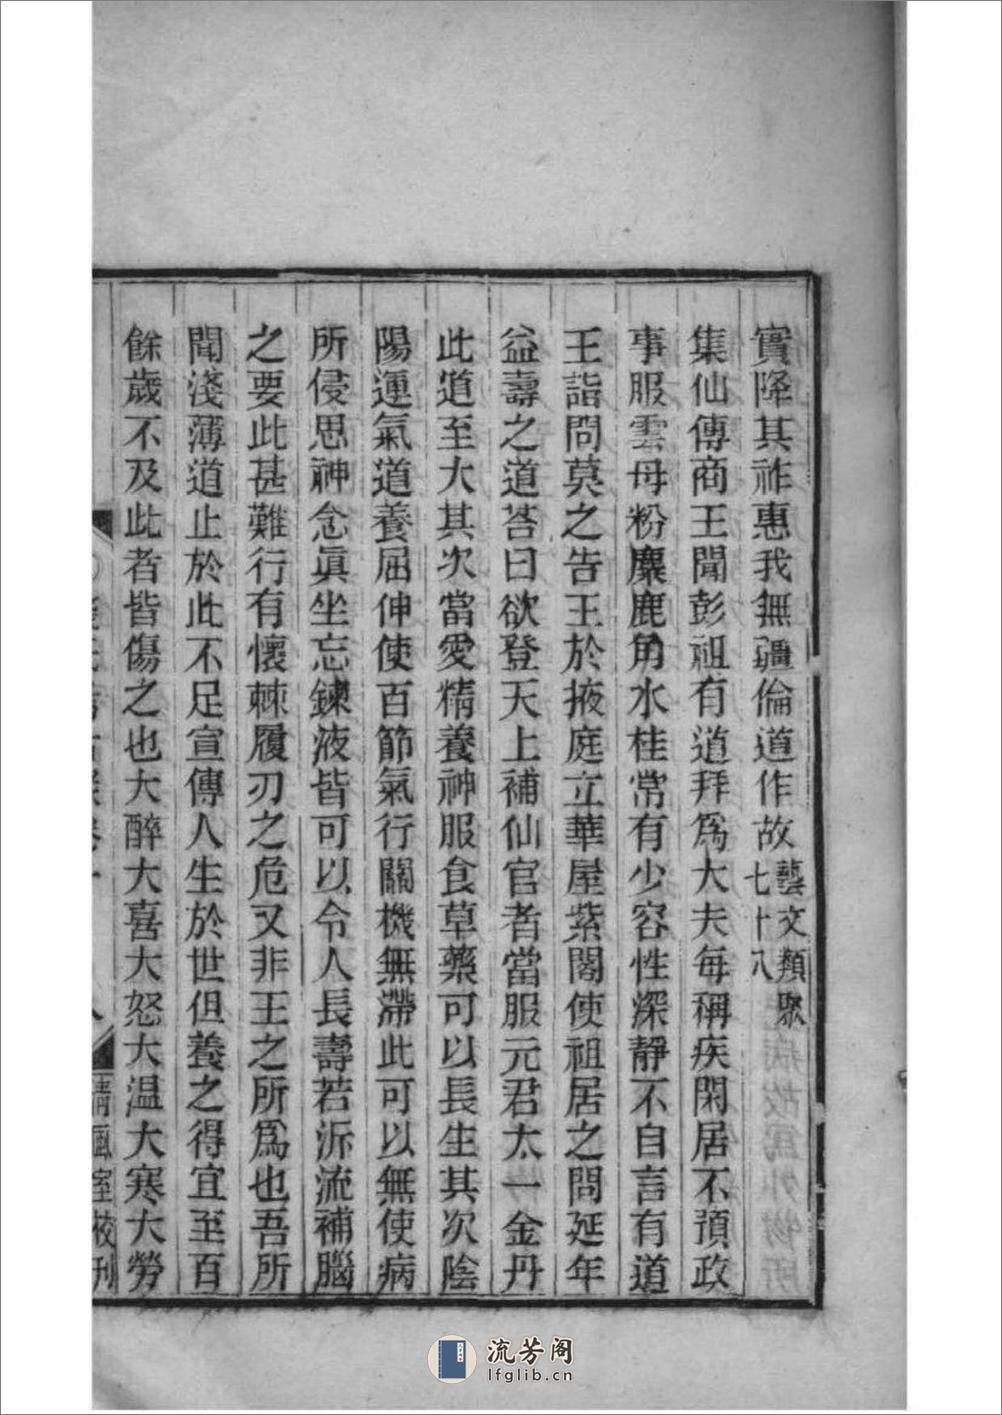 實降其祚惠我無疆倫道作故藝文類聚七十八
集仙傳商王聞彭祖有道拜爲大夫每稱疾閑居不預政
事服雲母粉麋鹿角水桂常有少容性深靜不自言有道
王詣問莫之告王於掖庭立華屋紫閣使祖居之問延年
益壽之道答曰欲登天上補仙官者當服元君太一金丹
此道至大其次當愛精養神服食草藥可以長生其次陰
陽運氣道養屈伸使百節氣行關機無滯此可以無使病
所侵思神念眞坐忘鍊液皆可以令人長壽若泝流補腦
之要此甚難行有懷棘履刃之危又非王之所爲也吾所
聞淺薄道止於此不足宣傳人生於世但養之得宜至百
餘歲不及此者皆傷之也大醉大喜大怒大温大寒大勞
室校刊
流芳阁
lfglib.cn